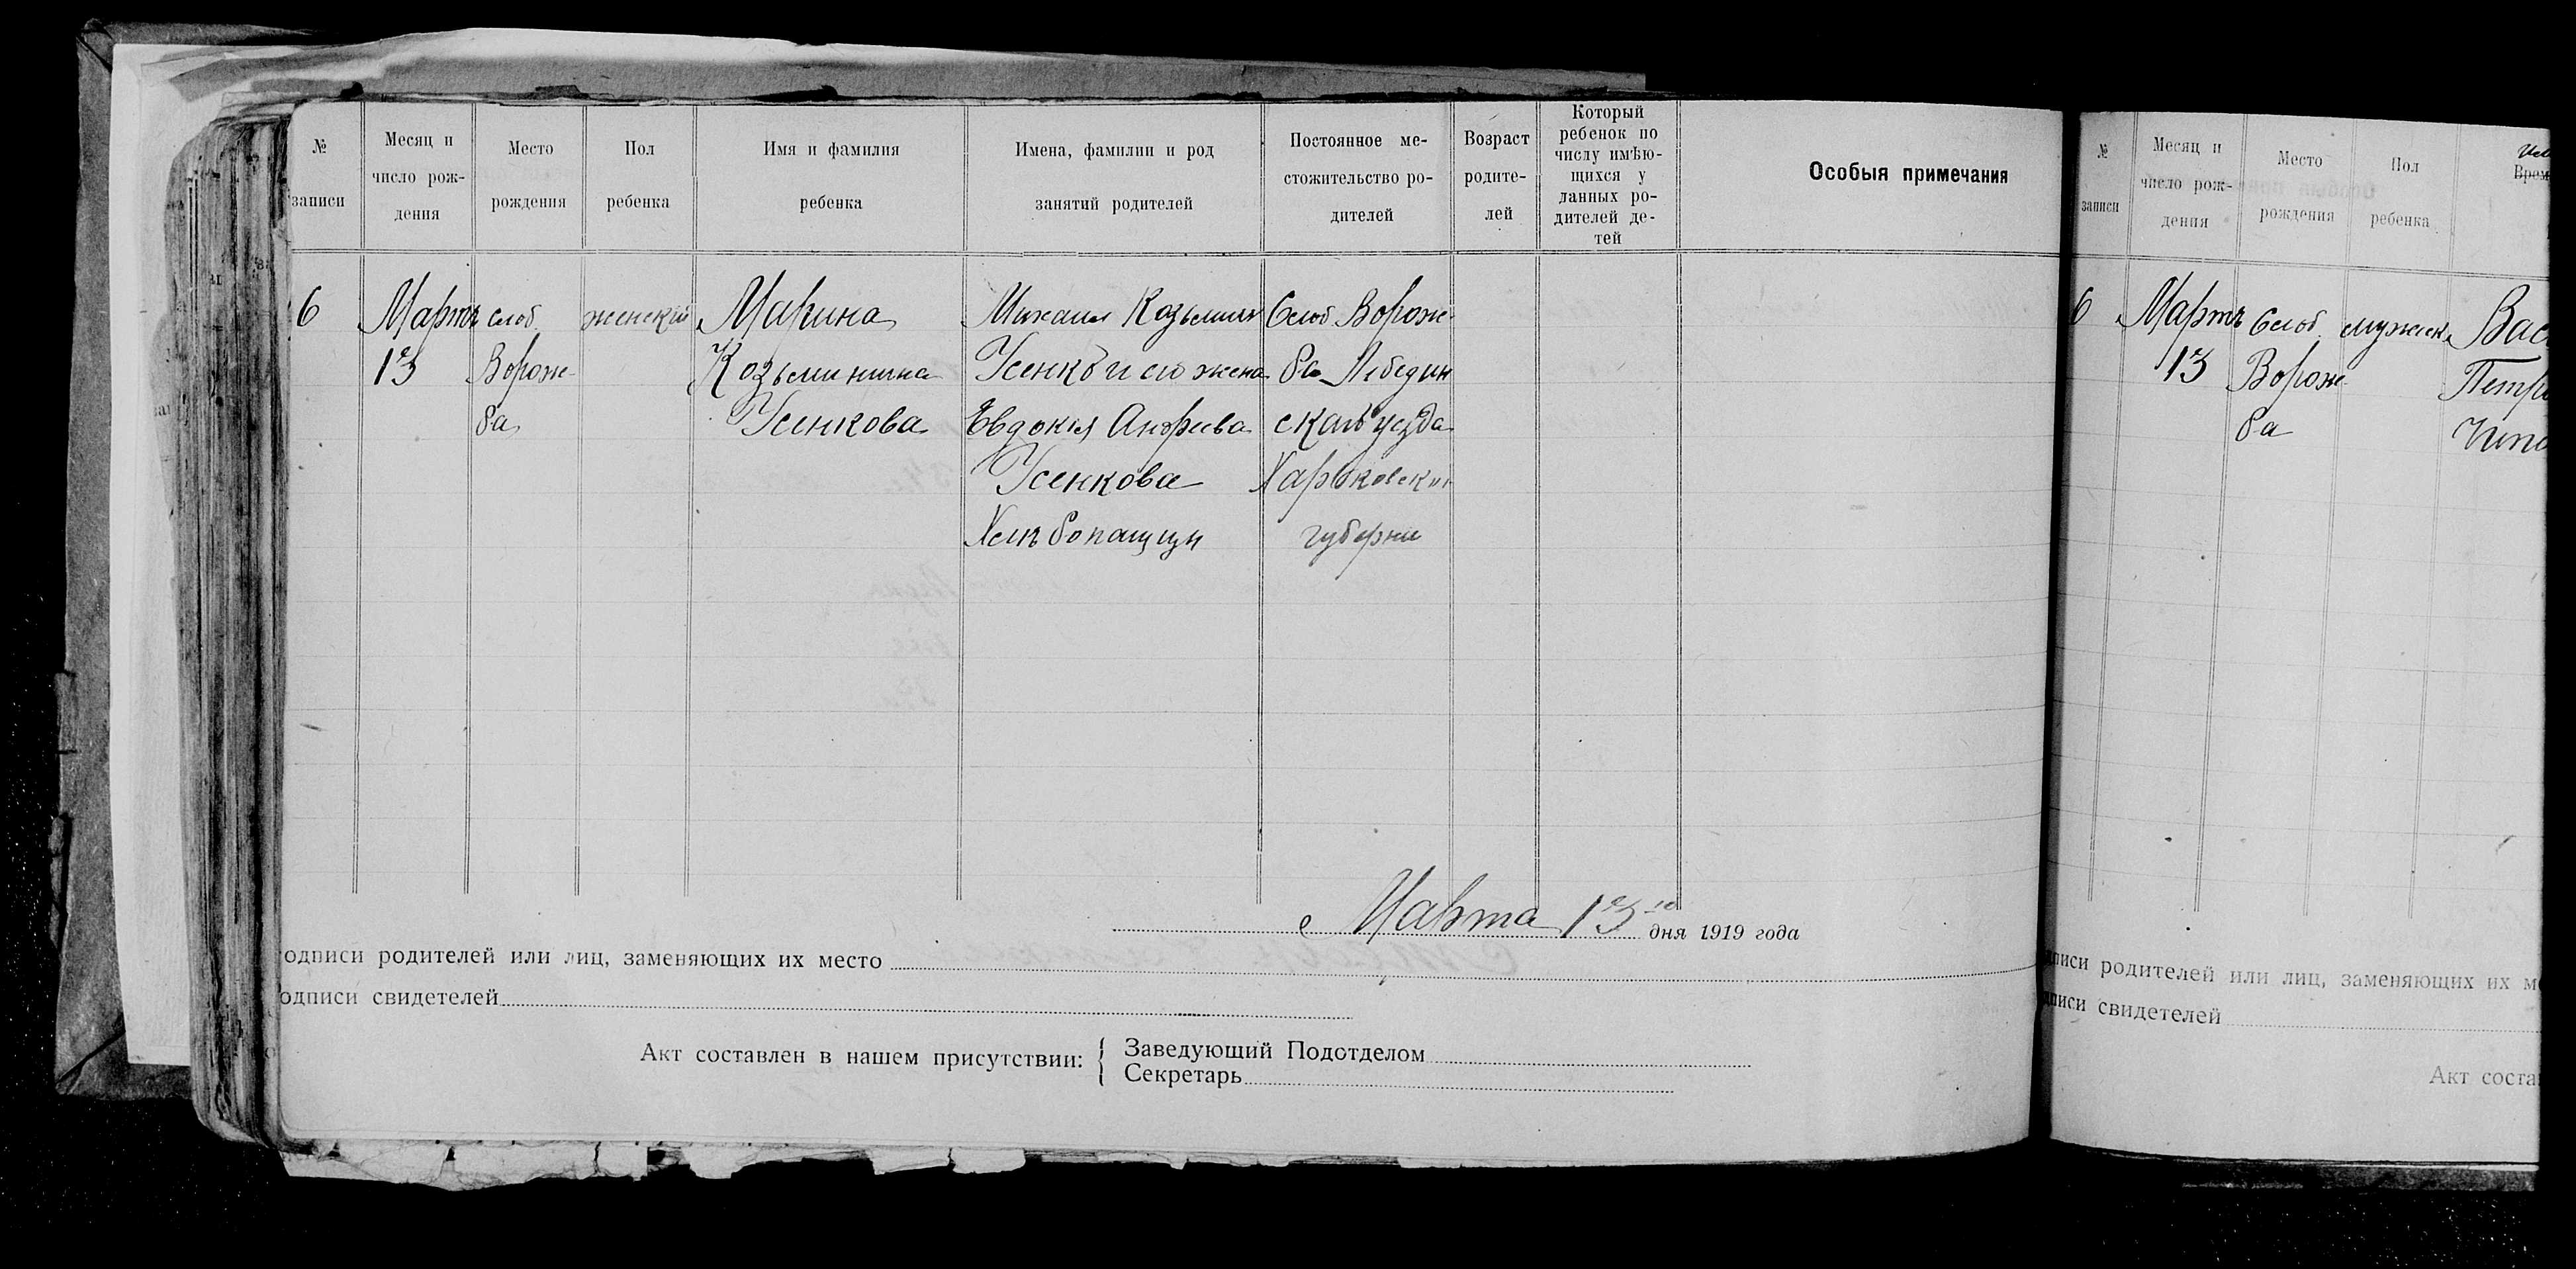 № записи
Месяц и число рождения
Место рождения
Пол ребенка
Имя и фамилия ребенка
Имена, фамилии и род занятий родителей
Постоянное ме-
стожительство ро-
дителей
Возраст
родите-
лей
Который
ребенок по
числу имѣю-
щихся у
данных ро-
дителей де-
тей
Особыя примечания
6
Мартъ
13
слоб.
Ворож-
ба
женский
Марина
Козьминична
Усенкова
Михаил Козьмич
Усенко и его жена
Евдокия Андреева
Усенкова
Хлѣбопашцы
Слоб. Ворож-
ба Лебедин
скаго уезда
Харьковской
губернии
Марта 13го дня 1919 года
одписи родителей или лиц, заменяющих их место
одписи свидетелей
Акт составлен в нашем присутствии:
Заведующий Подотделом
Секретарь
№
записи
Месяц и
число рож-
дения
Место
рождения
Пол
ребенка
6
Мартъ
13
Слоб.
Ворож-
ба
мужск.
Вас
Петр
дписи родителей или лиц, заменяющих их м
дписи свидетелей
Акт соста